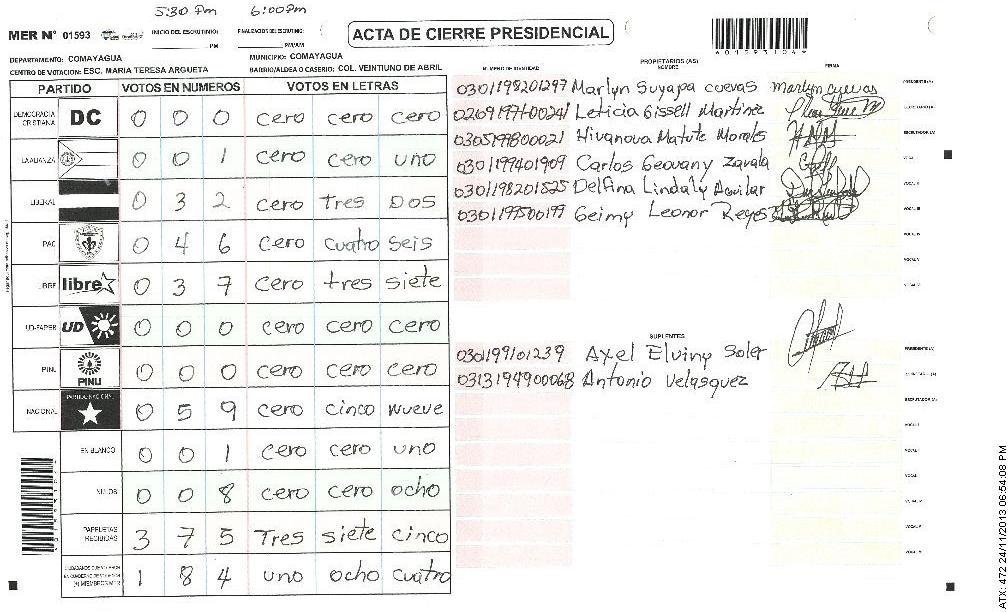 5:30 Pm 6:00 Pm
MER N° 01593 INICIO DEL ESCRUTINIO: PM FINALIZACION DEL ESCRUTINIO: PM/AM ACTA DE CIERRE PRESIDENCIAL
DEPARTAMENTO: COMAYAGUA MUNICIPIO: COMAYAGUA
CENTRO DE VOTACION: ESC. MARIA TERESA ARGUETA BARRIO/ALDEA O CASERIO: COL. VEINTIUNO DE ABRIL
PARTIDO VOTOS EN NUMEROS VOTOS EN LETRAS
DEMOCRACIA CRISTIANA DC 0 0 0 cero cero cero
LA ALIANZA 0 0 1 cero cero uno
LIBERAL 0 3 2 cero Tres Dos
PAC 0 4 6 cero cuatro seis
LIBRE libre 0 3 7 cero tres siete
UD-FAPER UD 0 0 0 cero cero cero
PINU PINU 0 0 0 cero cero cero
NACIONAL PARTIDO NACIONAL 0 5 9 cero cinco nueve
EN BLANCO 0 0 1 cero cero uno
NULOS 0 0 8 cero cero ocho
PAPELETAS RECIBIDAS 3 7 5 Tres siete cinco
1 8 4 uno ocho cuatro
NUMERO DE IDENTIDAD PROPIETARIOS (AS) NOMBRE FIRMA
0301198201297 Marlyn Suyapa cuevas marlyn cuevas
Leticia Gissell Martinez
0305199800021 Hivanova Matute Morales
0301199401909 Carlos Geovany Zavala
0301198201525 Delfina Lindaly Aguilar
Geimy Leonor Reyes
SUPLENTES
0301199101239 Axel Elviny Soler
0313194900068 Antonio Velasquez
ATX: 472 24/11/2013 06:54:08 PM